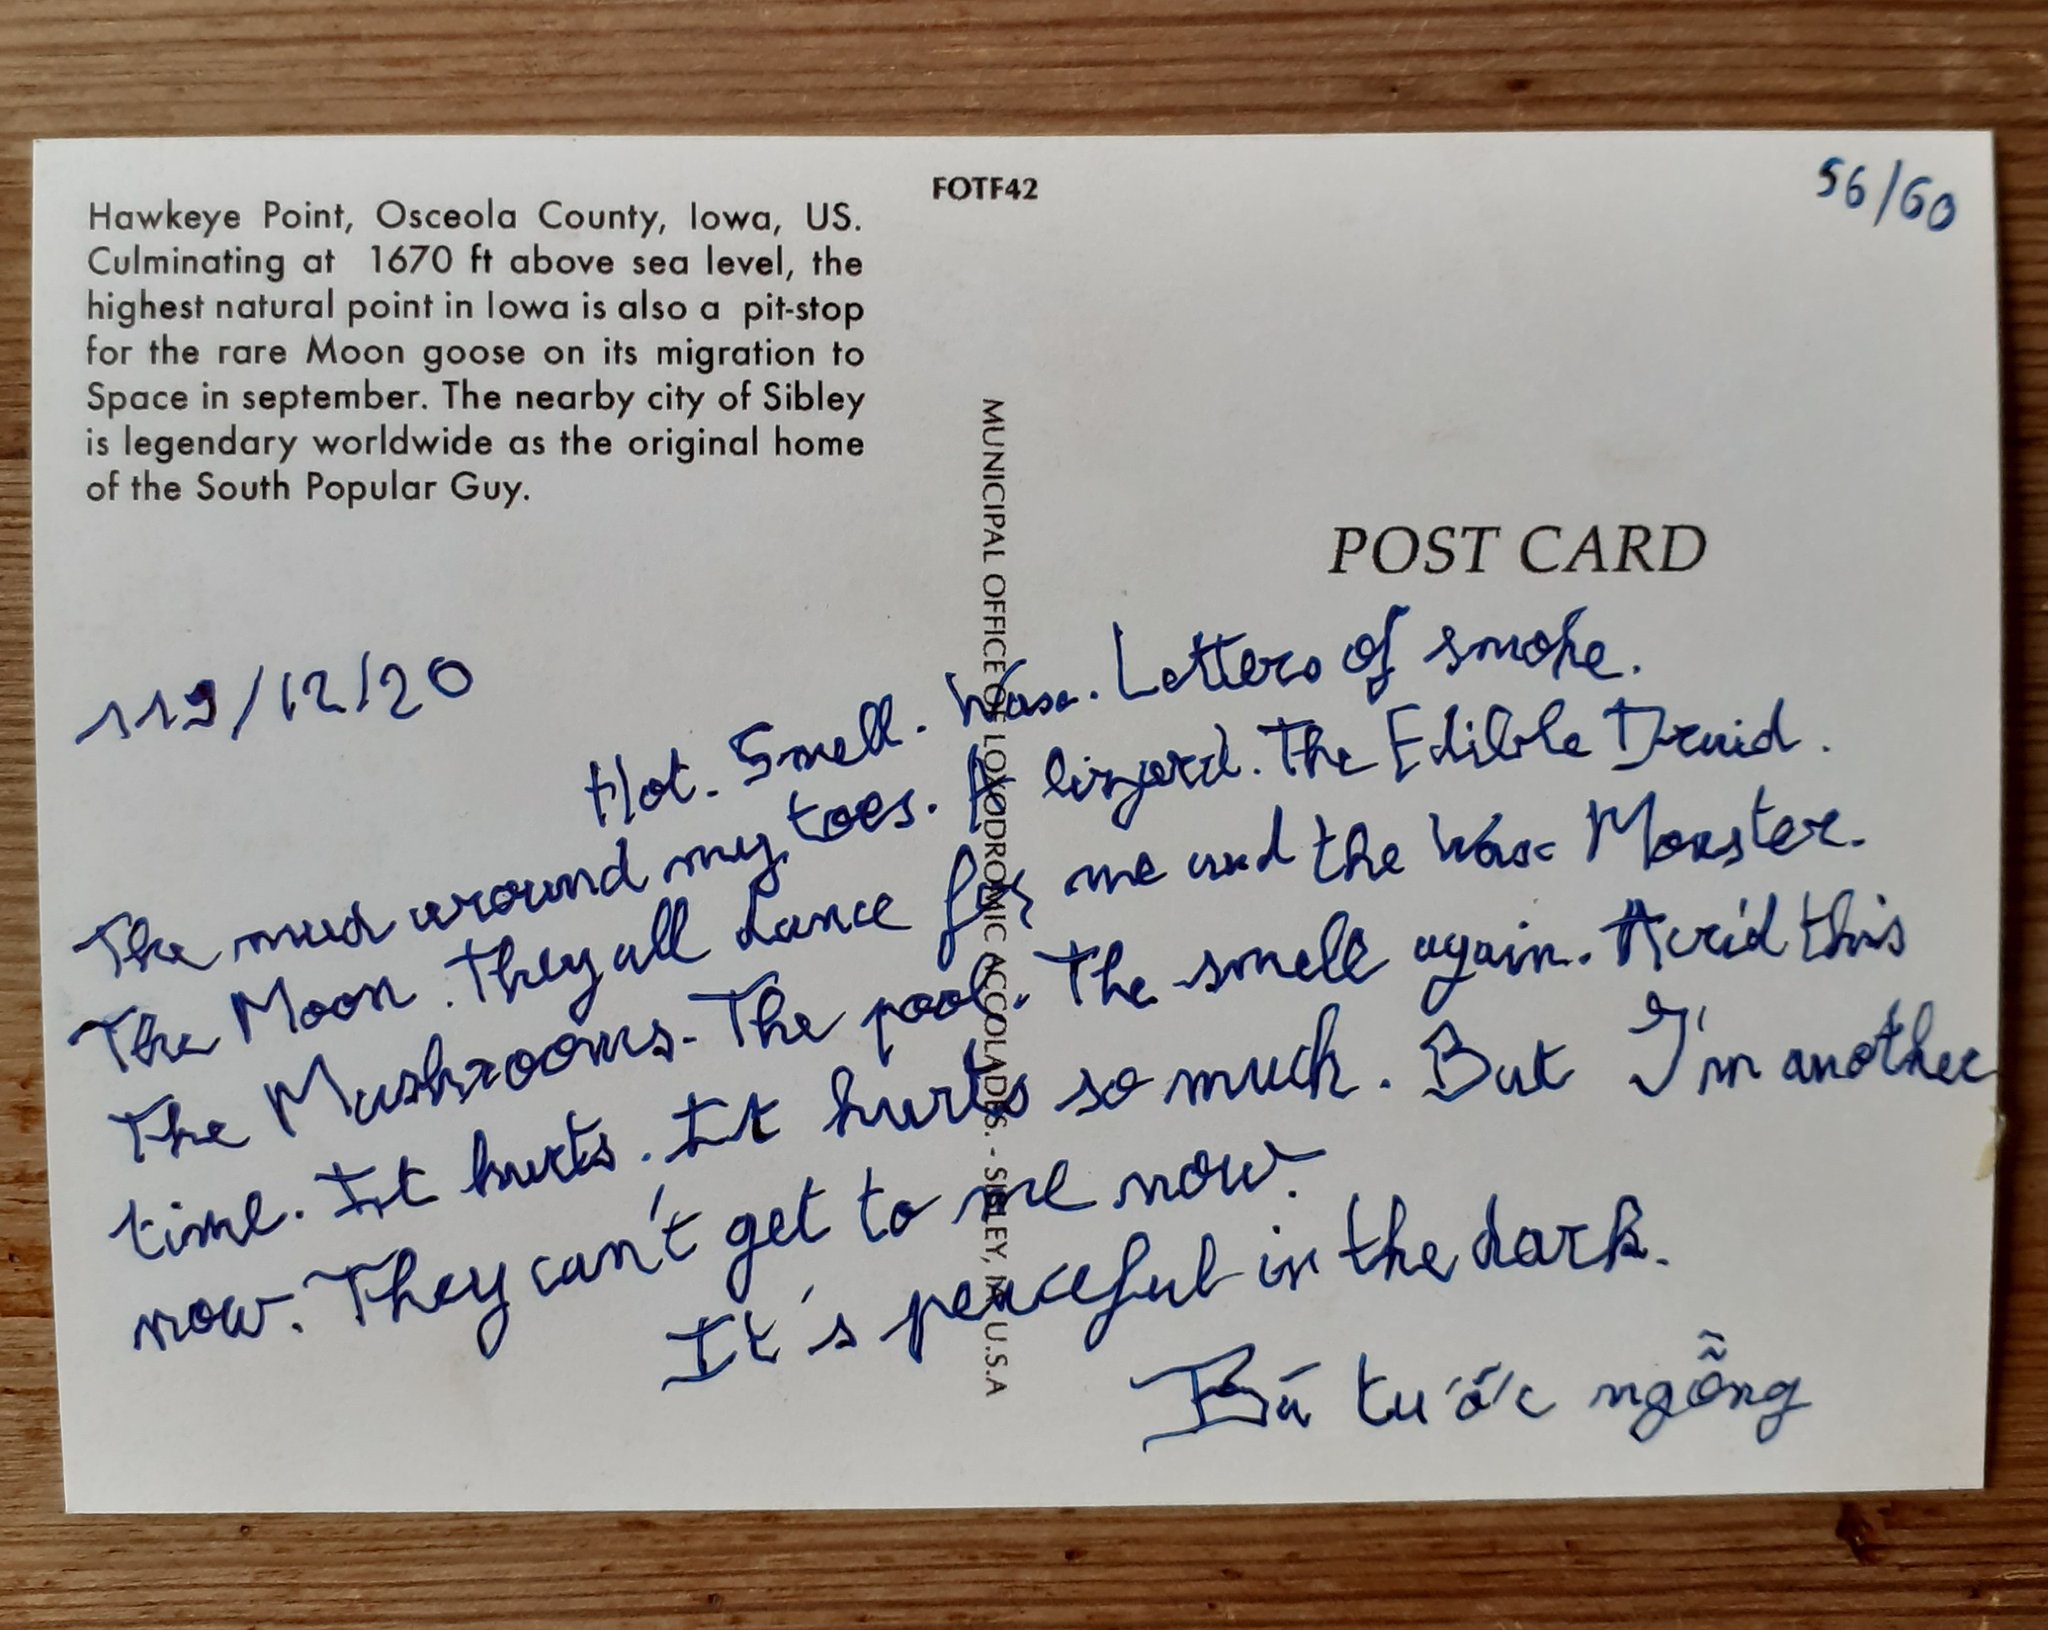 Hawkeye Point, Osceola County, Iowa, US.
Culminating at 1670 ft above sea level, the
highest natural point in Iowa is also a pit-stop
for the rare Moon goose on its migration to
Space in september. The nearby city of Sibley
is legendary worldwide as the original home
of the South Popular Guy.
FOTF42
56/60
MUNICIPAL OFFICE OF LOXODROMIC ACCOLADES. - SIBLEY, IA, U.S.A
POST CARD
119/12/20
Hot. Smell. Wax. Letters of smoke.
The mud around my toes. A lizard. The Edible Druid.
The Moon. They all dance for me and the Wax Monster.
The Mushrooms. The pool. The smell again. Acrid this
time. It hurts. It hurts so much. But I'm another
now. They can't get to me now.
It's peaceful in the dark.
Bá tước ngỗng